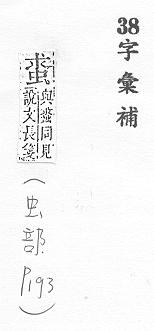 38字彙補
同見
說文長箋
(虫部 P.193)